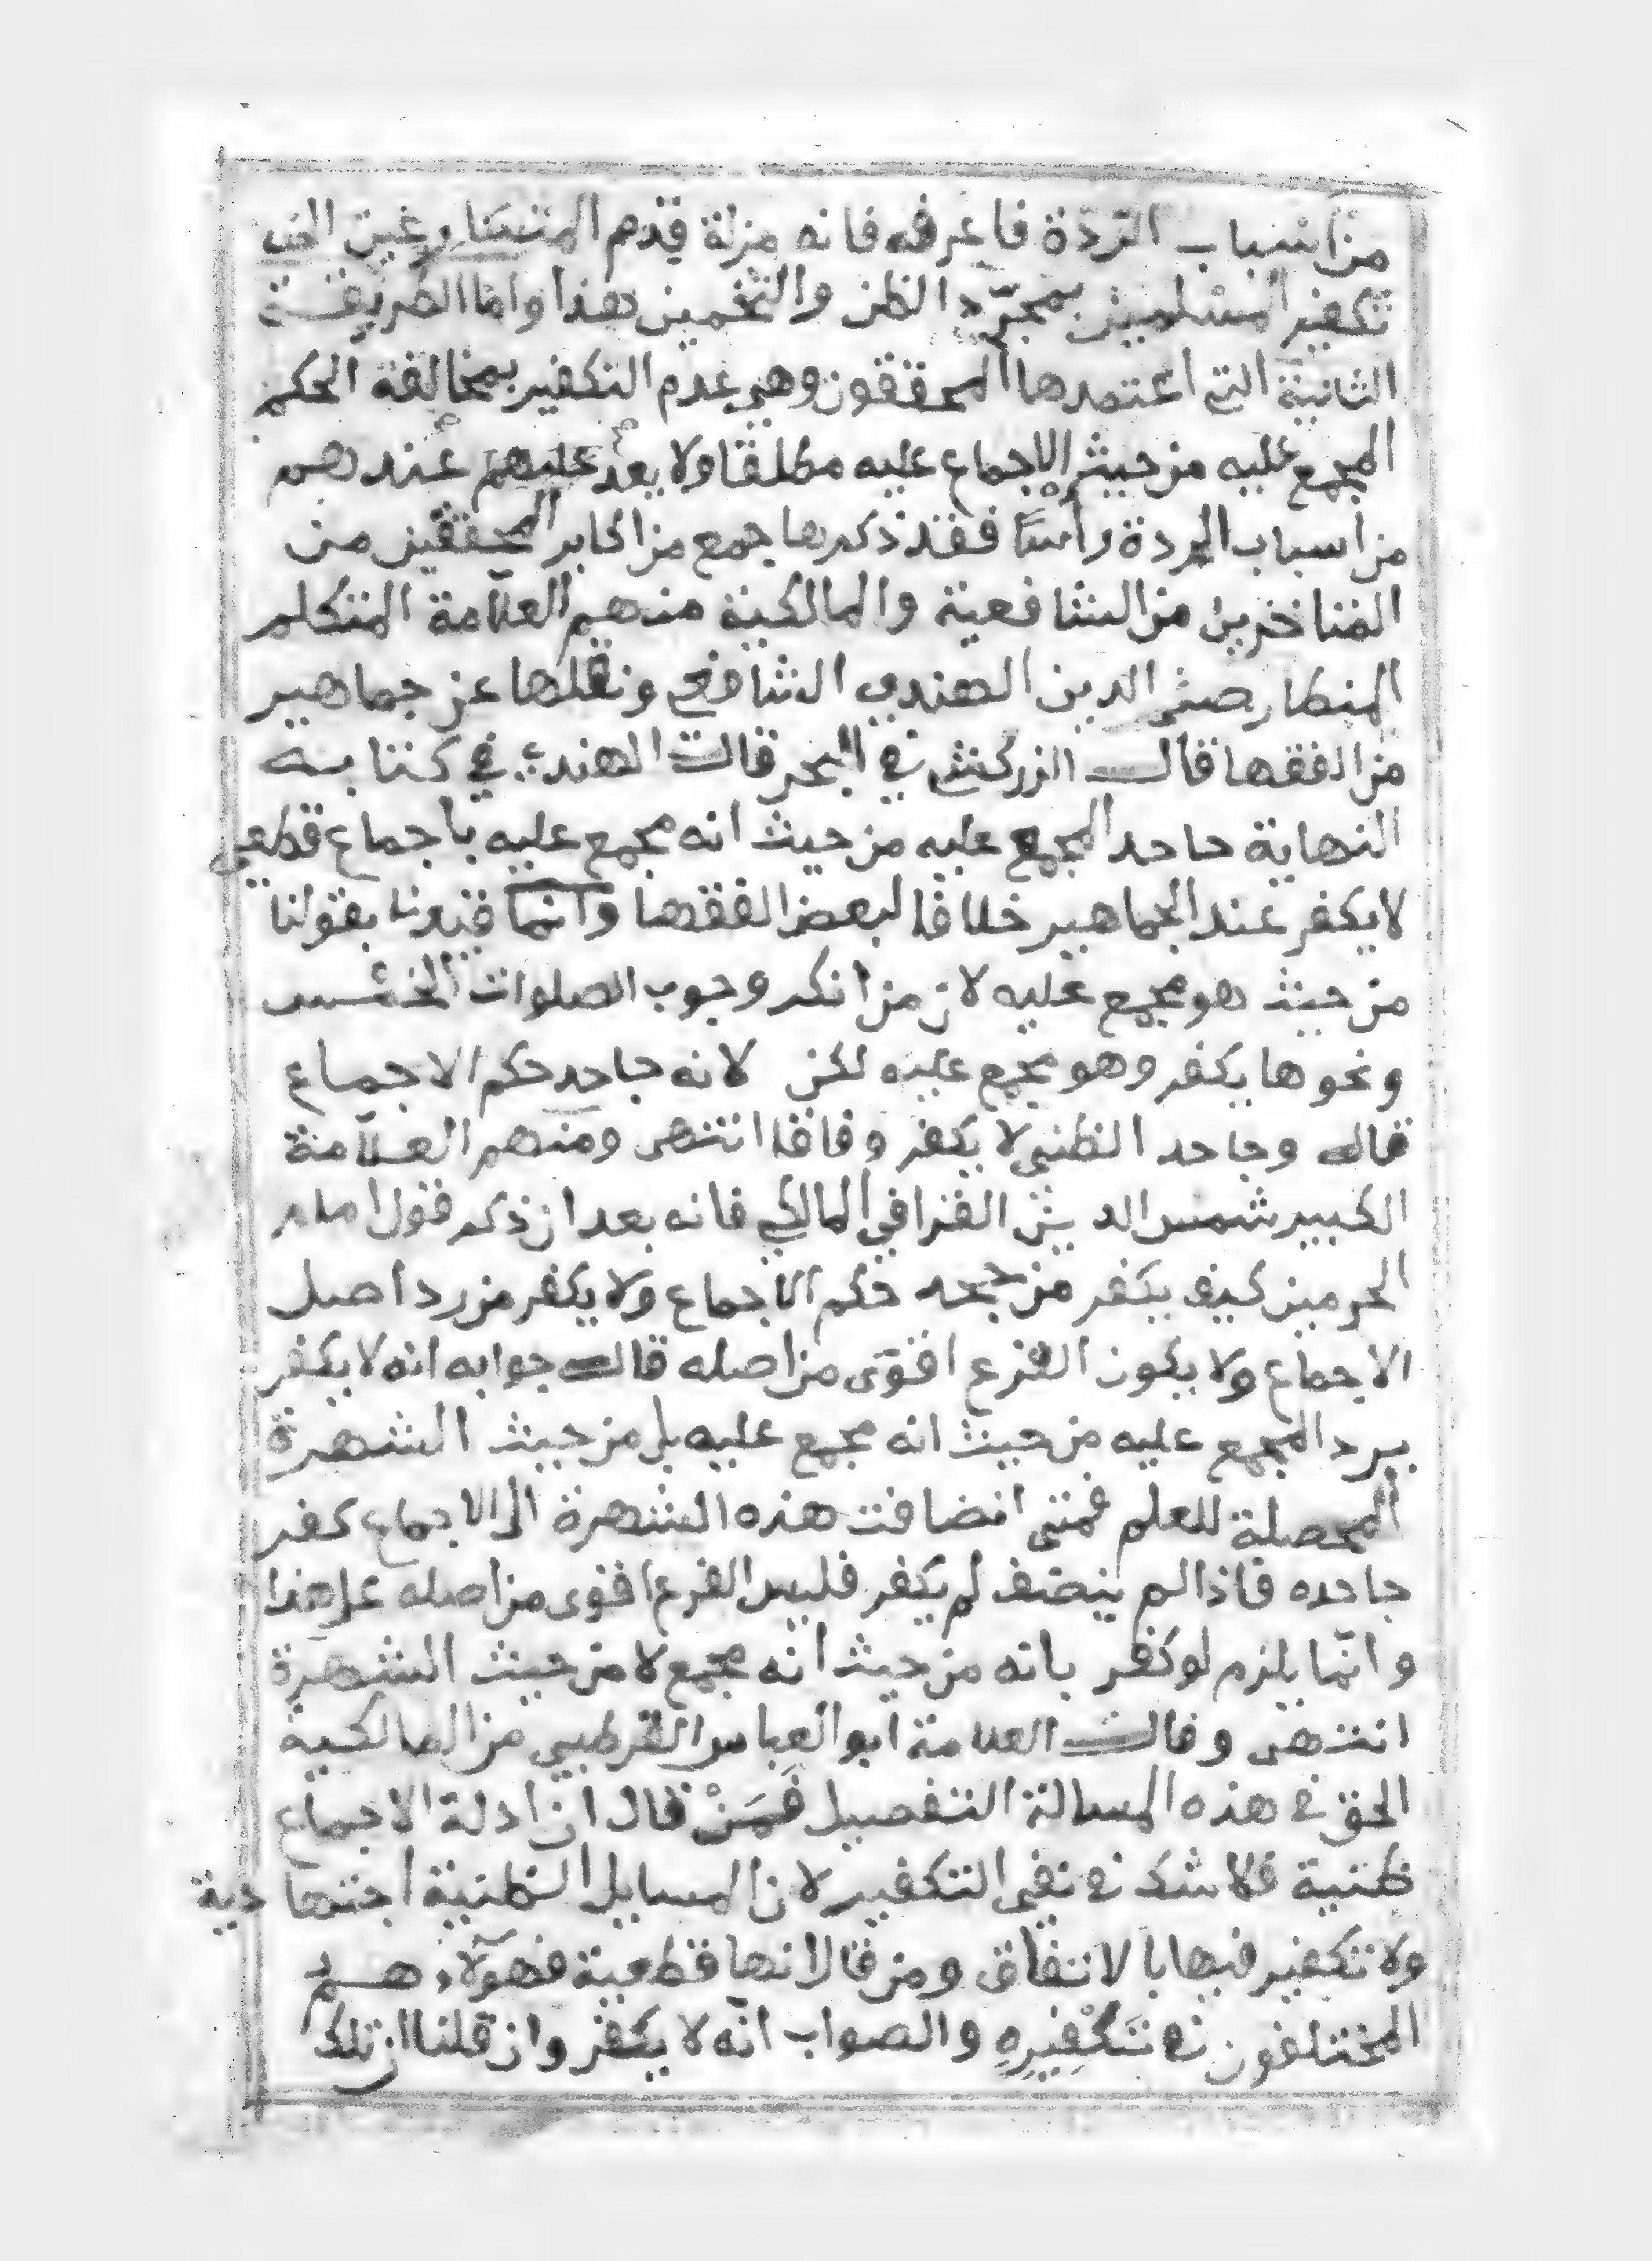 من اسباب الرّدّة فاعرفه فانه مزلة قدم المتسارعين الى
تكفير المسلمين بمجرّد الظن والتخمين هذا واما الطريقة
الثانية التي اعتمدها المحققون وهي عدم التكفير بمخالفة الحكم
المجمع عليه من حيث الاجماع عليه مطلقا ولا يعد عندهم
من اسباب الردة رأسًا فقد ذكرها جمع من اكابر المحققين من
المتاخرين من الشافعية والمالكية منهم العلّامة المتكلم
المنطار صفي الدين الهندي الشافعي ونقلها عن جماهير
من الفقها قال الزركشي في البحر قال الهندي في كتابه
النهاية جاحد المجمع عليه من حيث انه مجمع عليه باجماع قطعي
لا يكفر عند الجماهير خلافا لبعض الفقها وانما قيدنا بقولنا
من حيث هو مجمع عليه لان من انكر وجوب الصلوات الخمس
ونحوها يكفر وهو مجمع عليه لكن لا لانه جاحد حكم الاجماع
قال وجاحد الظني لا يكفر وفاقا انتهى ومنهم العلّامة
الكبير شمس الدين القرافي المالكي فانه بعد ان ذكر قول امام
الحرمين كيف يكفر من جحد حكم الاجماع ولا يكفر من رد اصل
الاجماع ولا يكون الفرع اقوى من اصله قال جوابه انه لا يكفر
برد المجمع عليه من حيث انه مجمع عليه بل من حيث الشهرة
المحصلة للعلم فمتى انضافت هذه الشهرة الى الاجماع كفر
جاحده فاذا لم ينضف لم يكفر فليس الفرع اقوى من اصله على هذا
وانّما يلزم لو كفر بانه من حيث انه مجمع لا من حيث الشهرة
انتهى وقال العلامة ابو العباس القرطبي من المالكية
الحق في هذه المسالة التفصيل فَمَنْ قال ان ادلة الاجماع
ظنية فلا شك في نفي التكفير لان المسايل الظنية اجتهادية
ولا تكفير فيها بالاتفاق ومن قال انها قطعية فهولآء هم
المختلفون في تَكْفِيرِهِ والصواب انّه لا يكفر وان قلنا ان تلك